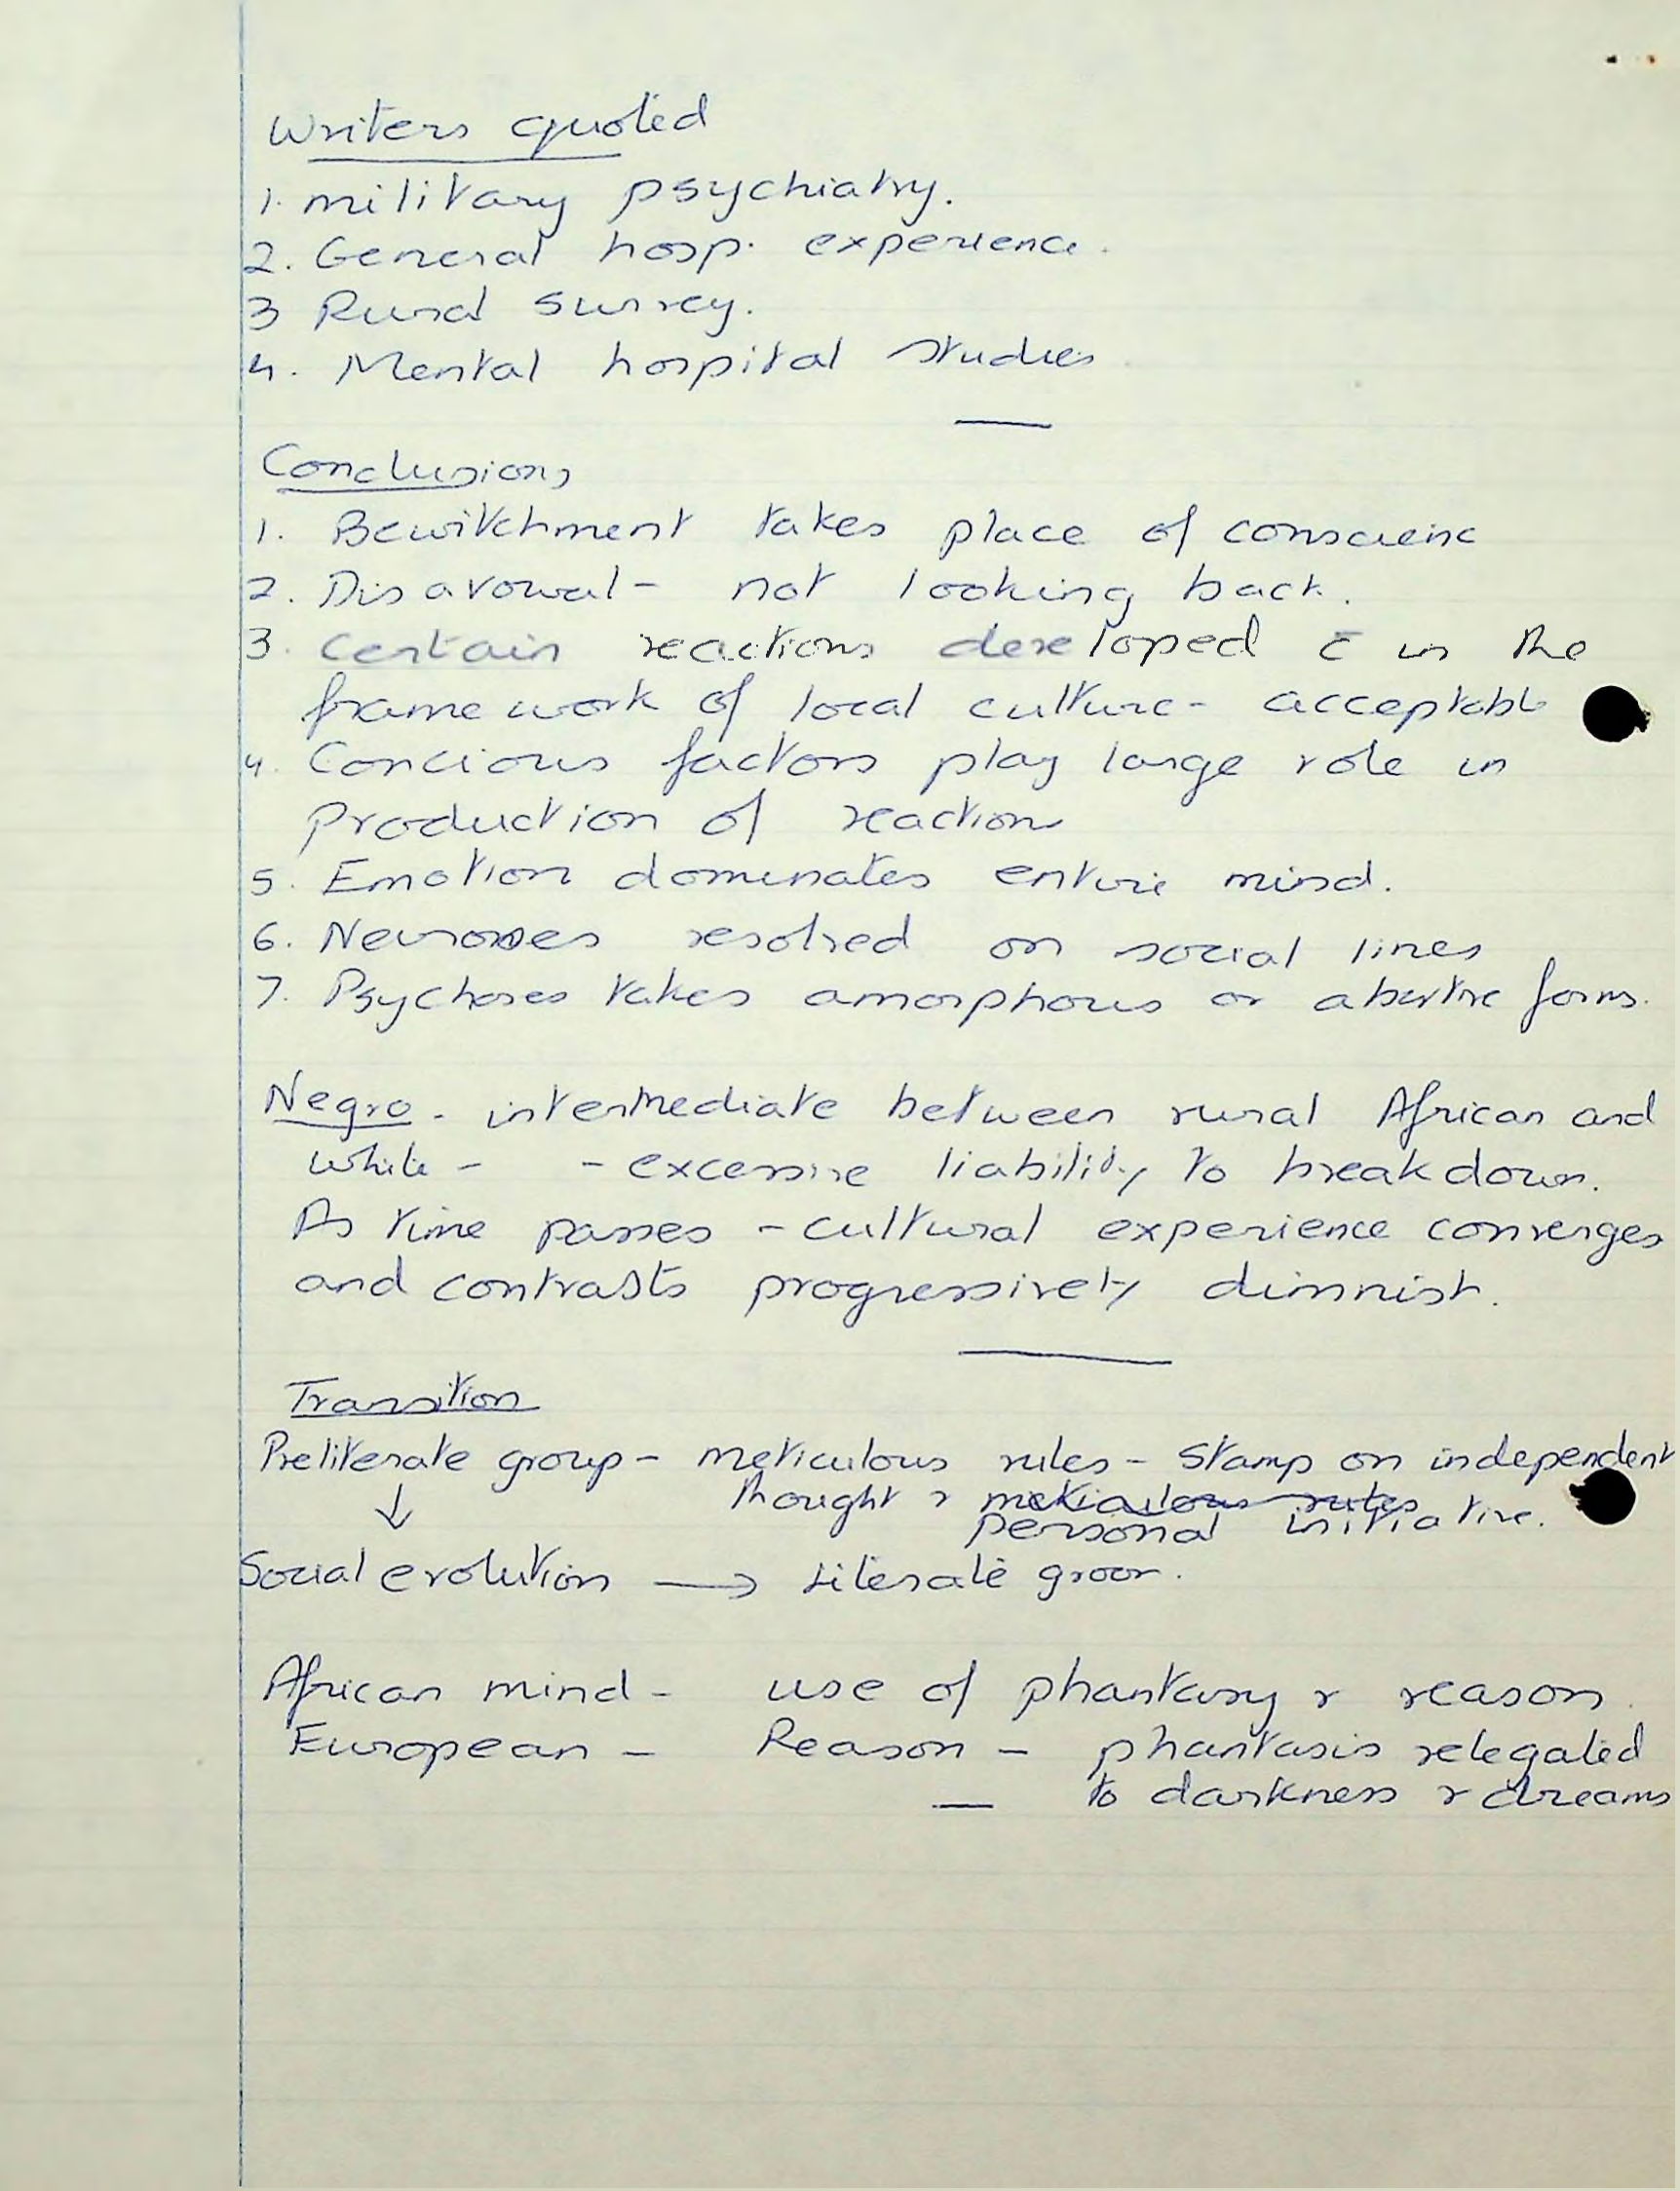 Writers quoted
1. military psychiatry.
2. General hosp. experience.
3 Rural survey.
4. Mental hospital studies
Conclusions
1. Bewitchment takes place of conscienc
2. Disavowal - not looking back.
3. Certain reactions developed c̄ in the
framework of local culture - acceptable
4. Concious factors play large role in
production of reaction
5. Emotion dominates entire mind.
6. Neuroses resolved on social lines
7. Psychoses takes amorphous or abortive forms.
Negro - intermediate between rural African and
white - - excessive liability to breakdown.
As time passes - cultural experience converges
and contrasts progressively dimnish.
Transition
Preliterate group - meticulous rules - stamp on independent
↓ thought & meticulous rules
personal initiative.
Social evolution → Literate
African mind - use of phantasy & reason.
European - Reason - phantasis relegated
to darkness & dreams